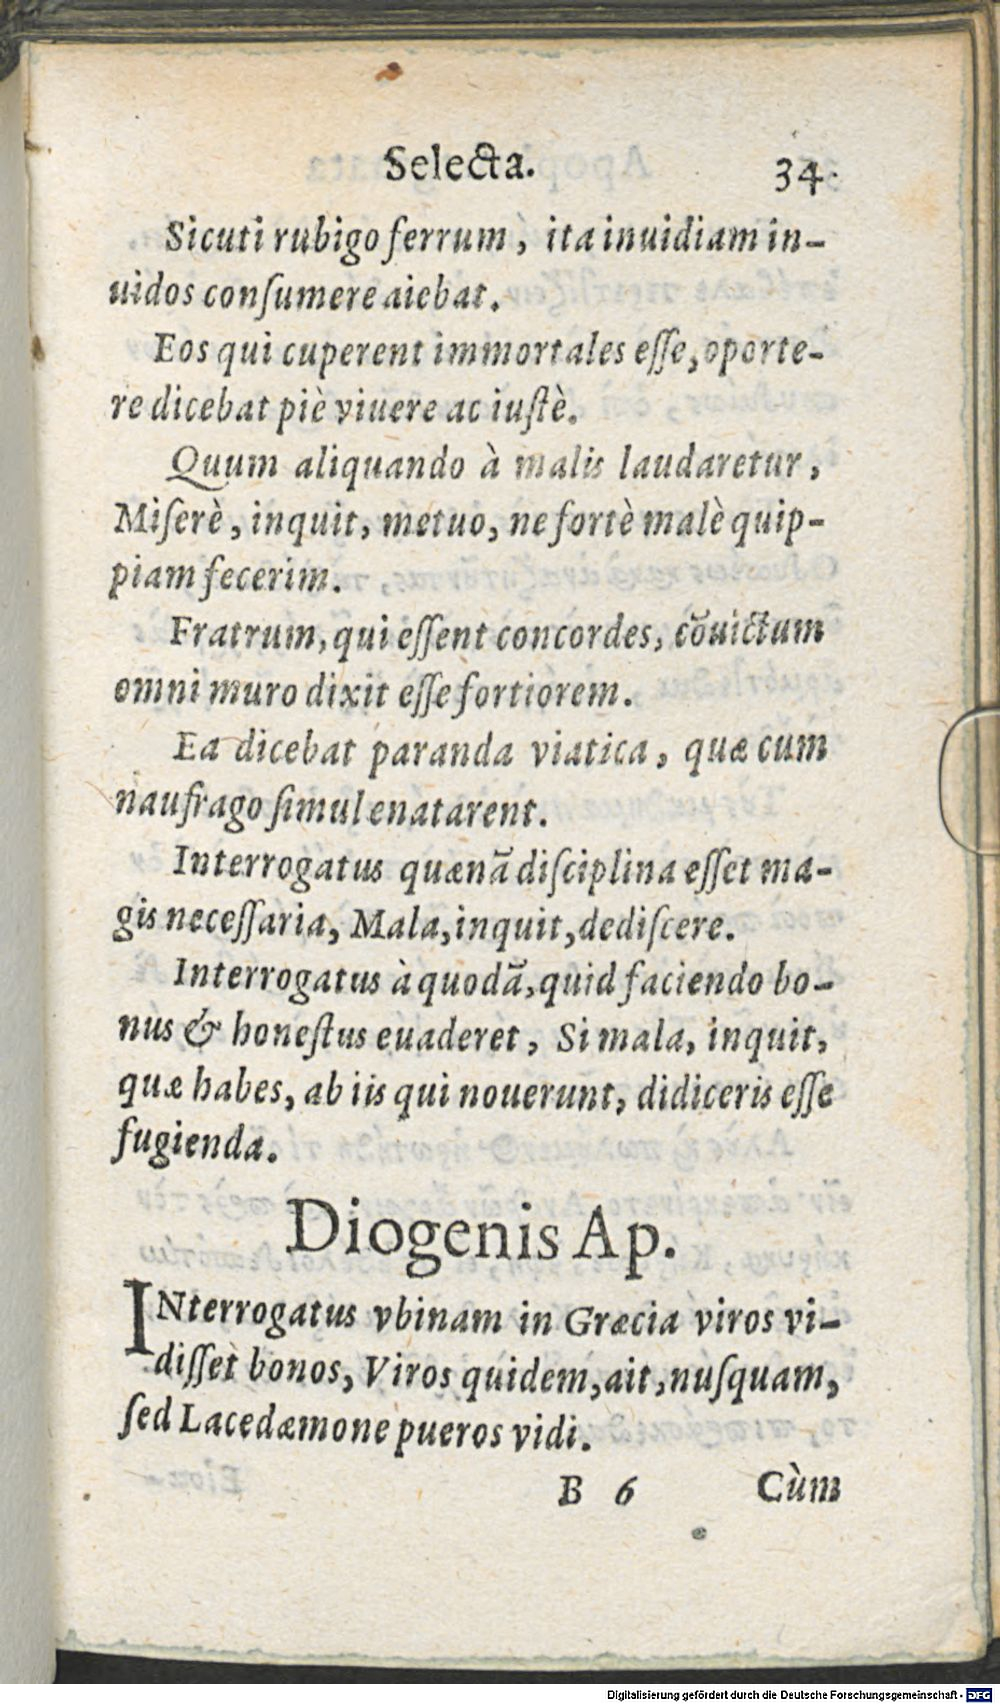 Selecta. 34.
Sicuti rubigo ferrum, ita inuidiam in-
uidos conſumere aiebat.
Eos qui cuperent immortales eſſe, oporte-
re dicebat piè viuere ac iuſtè.
Quum aliquando à malis laudaretur,
Miſerè, inquit, metuo, ne fortè malè quip-
piam fecerim.
Fratrum, qui eſſent concordes, cõuictum
omni muro dixit eſſe fortiorem.
Ea dicebat paranda viatica, quæ cum
naufrago ſimul enatarent.
Interrogatus quænã diſciplina eſſet ma-
gis neceſſaria, Mala, inquit, dediſcere.
Interrogatus à quodã, quid faciendo bo-
nus & honeſtus euaderet, Si mala, inquit,
quæ habes, ab iis qui nouerunt, didiceris eſſe
fugienda.
Diogenis Ap.
INterrogatus vbinam in Græcia viros vi-
diſſet bonos, Viros quidem, ait, nuſquam,
ſed Lacedæmone pueros vidi.
B 6 Cùm
Digitalisierung gefördert durch die Deutsche Forschungsgemeinschaft - DFG